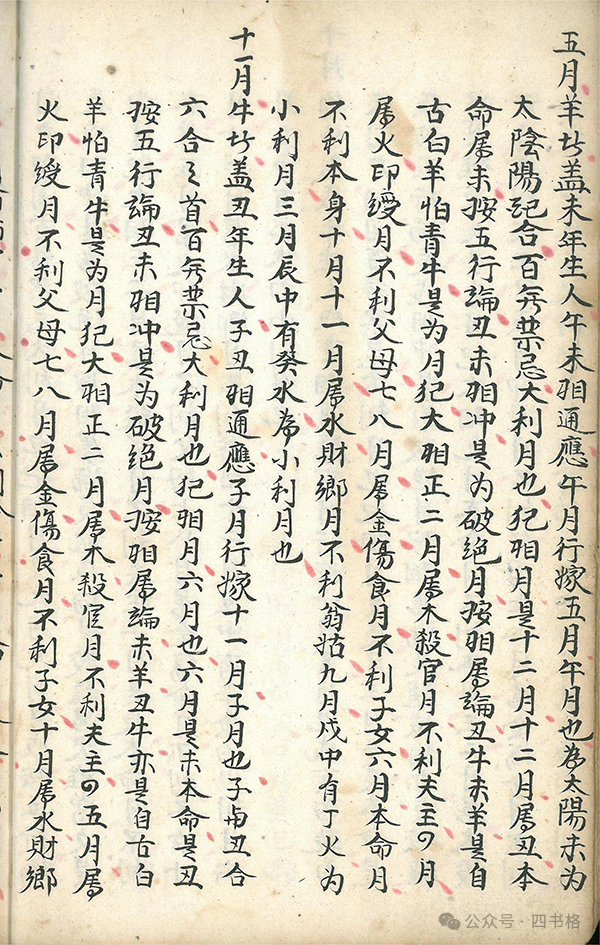 五月羊廾盖未年生人午未相通應午月行嫁五月午月也為太陽未为
太陰陽紀合百無禁忌大利月也犯相月是十二月十二月属丑本
命属未按五行論丑未相冲是为破绝月按相属論丑牛未羊是自
古白羊怕青牛是为月犯大相正二月属木殺官月不利夫主四月
属火印绶月不利父母七八月属金傷食月不利子女六月本命月
不利本身十月十一月属水財鄉月不利翁姑九月戊中有丁火为
小利月三月辰中有癸水為小利月也
十一月牛廾盖丑年生人子丑相通應子月行嫁十一月子月也子与丑合
六合之首百無禁忌大利月也犯相月六月也六月是未本命是丑
按五行論丑未相冲是为破绝月按相属論未羊丑牛亦是自古白
羊怕青牛是为月犯大相正二月属木殺官月不利夫主四五月属
火印绶月不利父母七八月属金傷食月不利子女十月属水財鄉
公众号·四书格